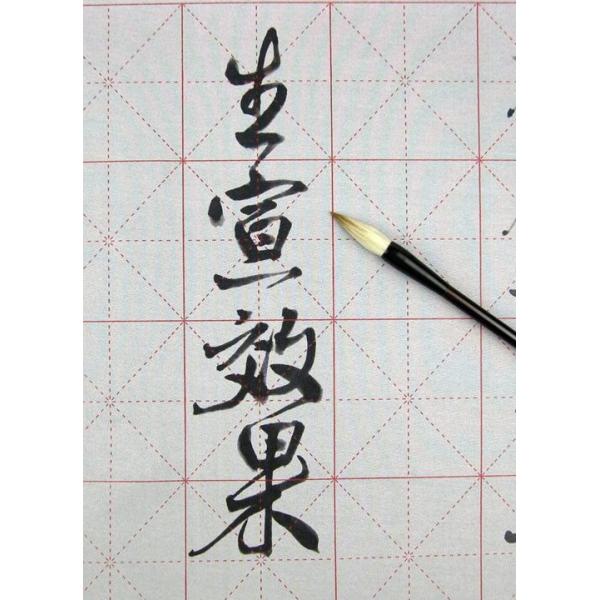 生宣效果